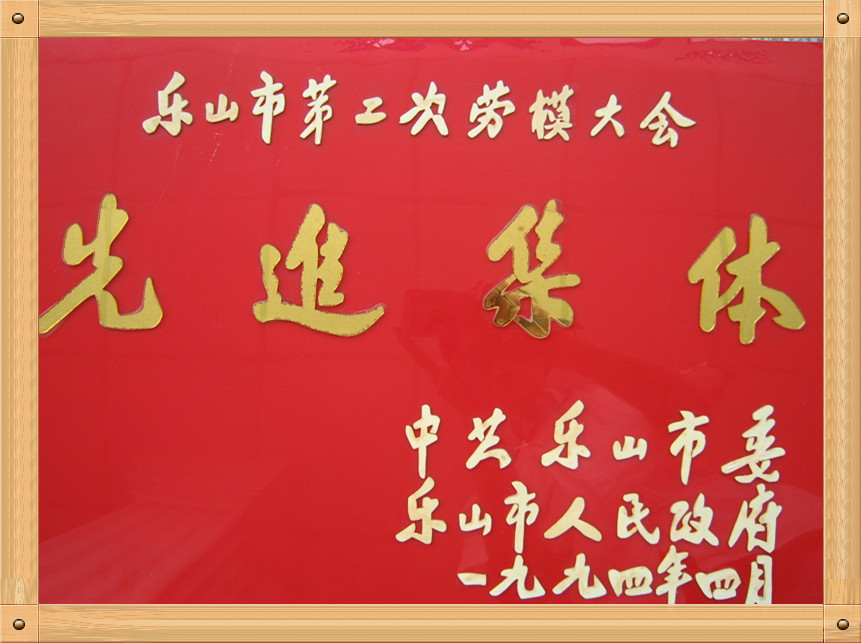 乐山市第二次劳模大会
先進集体
中共乐山市委
乐山市人民政府
一九九四年四月